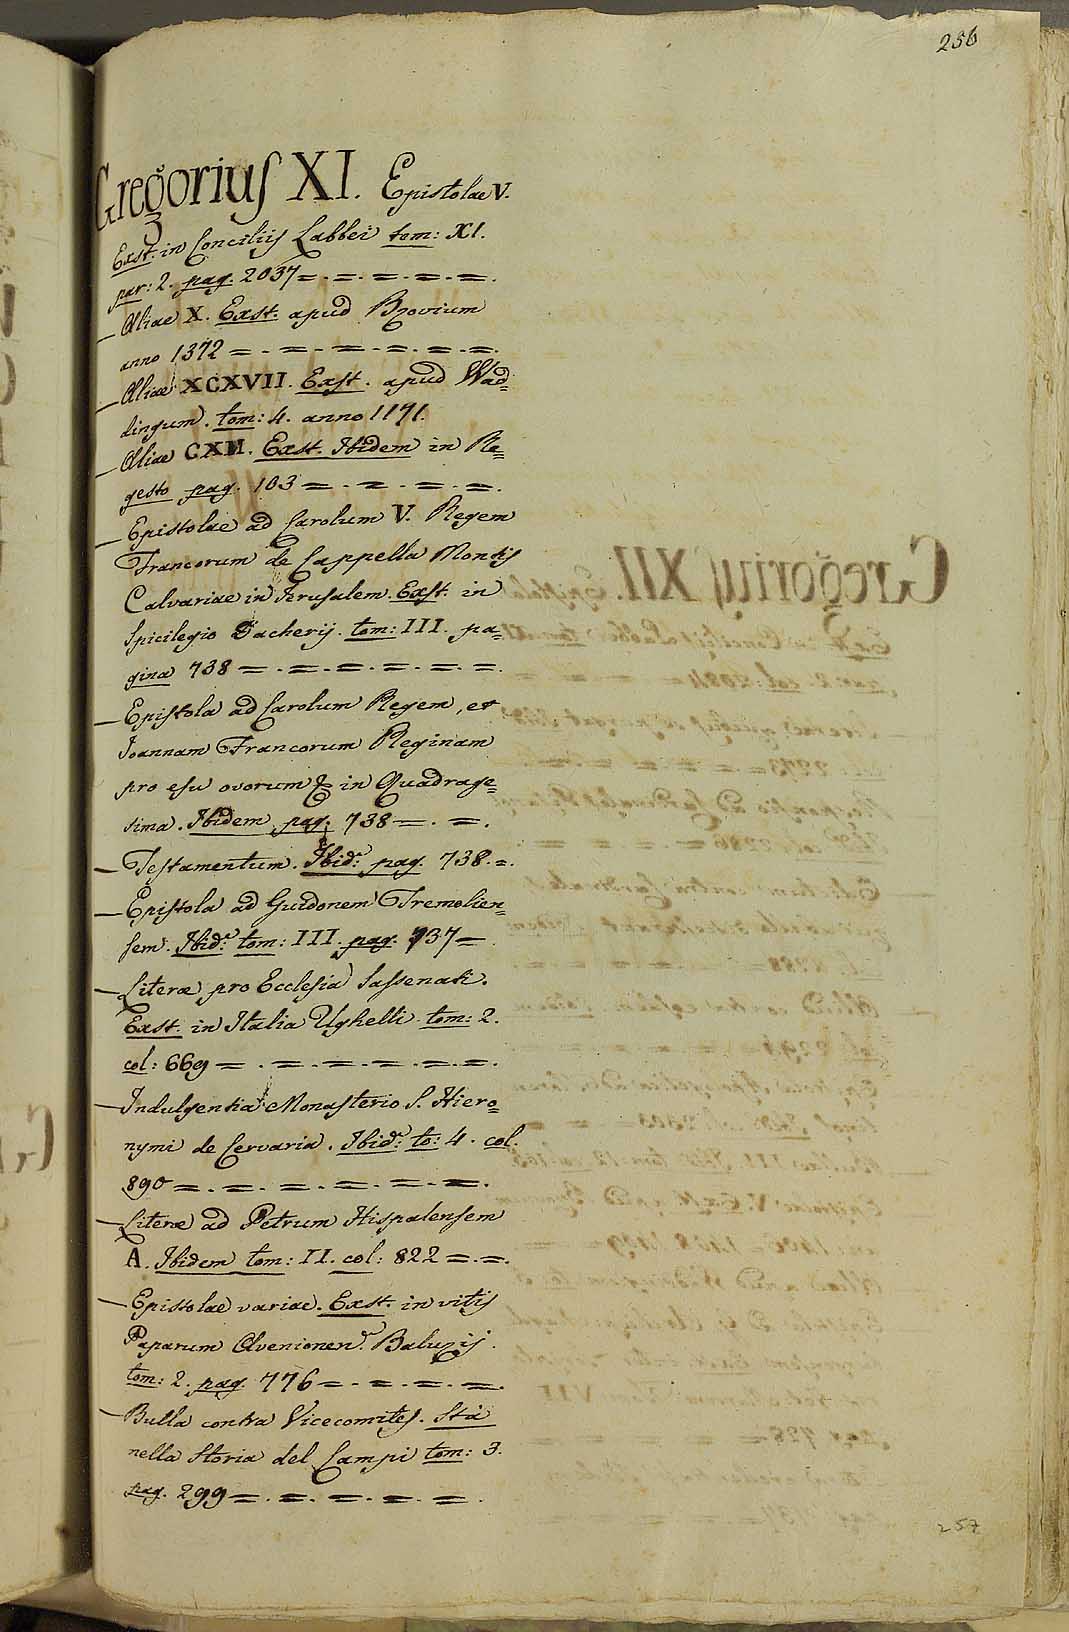 256
Gregorius XI. Epistolae V.
Exst. in Conciliis Labbei tom: XI.
par: 2. pag. 2037 = . = . = . = . = .
— Aliae X. Exst. apud Bzovium
anno 1372 = . = . = . = . = . = .
— Aliae XCXVII. Exst. apud Wad=
dingum. tom: 4. anno 1171.
— Aliae CXII. Exst. Ibidem in Re=
gesto pag. 103 = . = . = . = .
— Epistolae ad Carolum V. Regem
Francorum de Cappella Montis
Calvariae in Jerusalem. Exst. in
Spicilegio Dacherij. tom: III. pa=
gina 738 = . = . = . = . = . = .
— Epistola ad Carolum Regem, et
Joannam Francorum Reginam
pro esu ovorum & in Quadrage=
sima. Ibidem pag. 738 = . = .
— Testamentum. Ibid: pag. 738. = .
— Epistola ad Guidonem Tremolien=
sem. Ibid: tom: III. pag. 737 =
— Literae pro Ecclesia Sassenati.
Exst. in Italia Ughelli tom: 2.
col: 669 = . = . = . = . = . = .
— Indulgentia Monasterio S. Hiero=
nymi de Cervaria. Ibid: to: 4. col.
890 = . = . = . = . = . = .
— Literae ad Petrum Hispalensem
A. Ibidem tom: II. col: 822 = . = .
— Epistolae variae. Exst. in vitis
Paparum Avenionen. Baluzij.
tom: 2. pag. 776 = . = . = . = .
— Bulla contra Vicecomites. Stà
nella Storia del Campi tom: 3.
pag. 299 = . = . = . = . = .
257